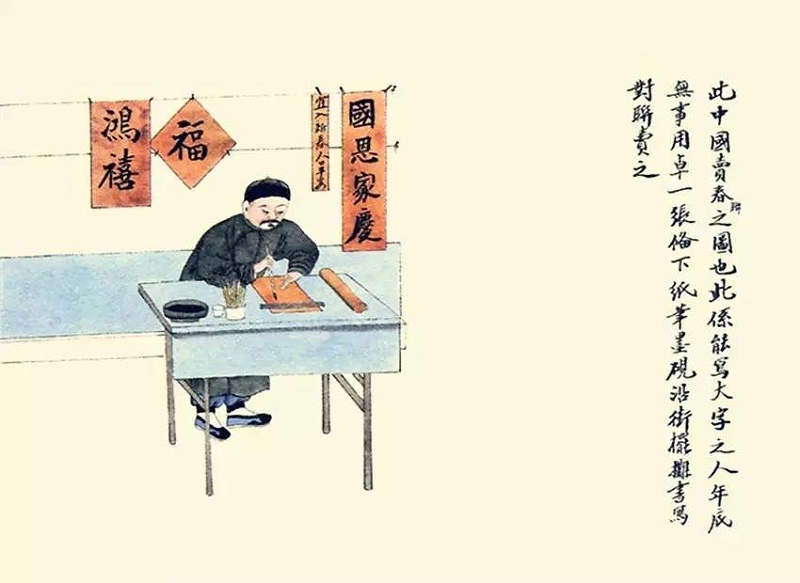 此中國賣春聯之圖也此係能寫大字之人年底
無事用卓一張俻下紙筆墨硯沿街擺攤書寫
對聯賣之
國恩家慶
宜入新春人口平安
福
鴻禧